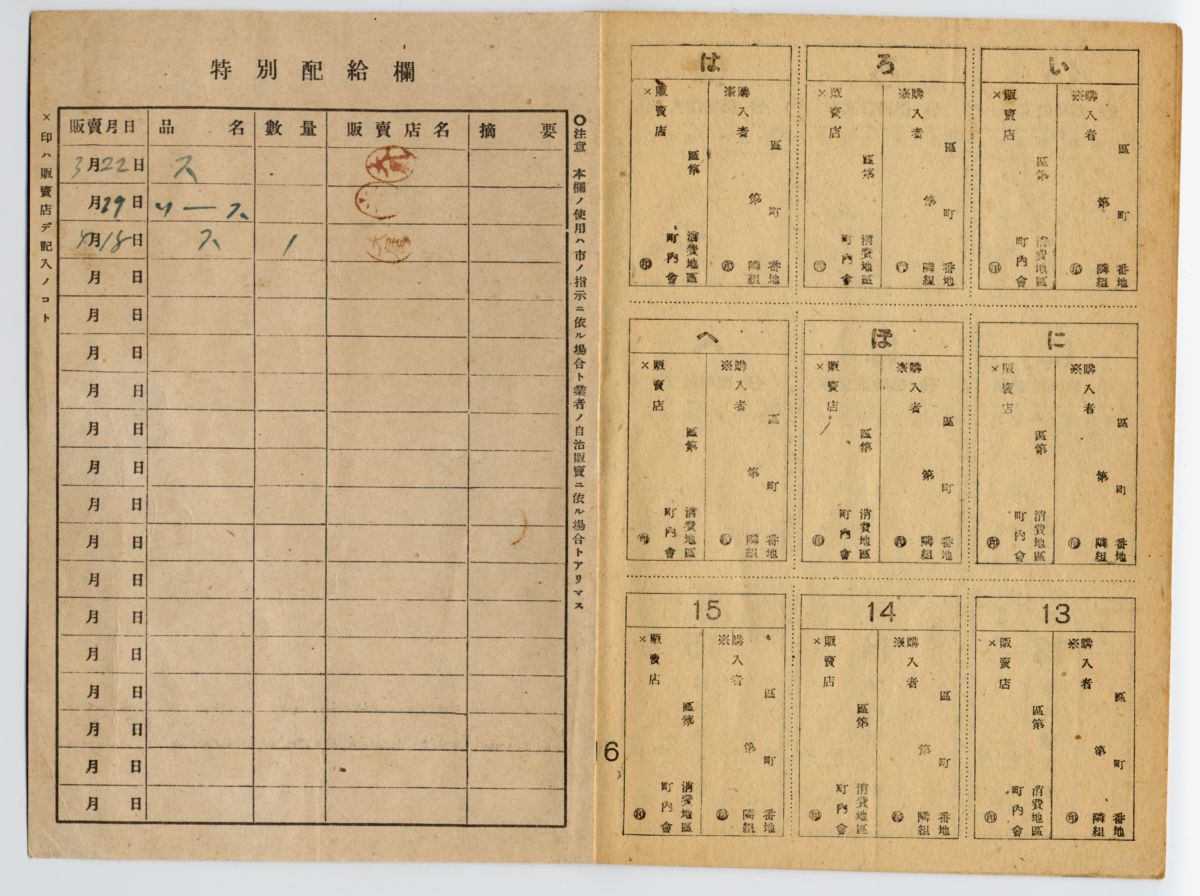 特別配給欄
◯注意 本欄ノ使用ハ市ノ指示ニ依ル場合ト業者ノ自治販賣ニ依ル場合トアリマス
販賣月日 品名 數量 販賣店名 摘要
3月22日 ス
月19日 ソース
月18日 ス 1
月 日
月 日
月 日
月 日
月 日
月 日
月 日
月 日
月 日
月 日
月 日
月 日
月 日
月 日
月 日
×印ハ販賣店デ記入ノコト
い
※購入者 區 町 第 番地 隣組 印
×販賣店 區第 消費地區 町內會 印
ろ
※購入者 區 町 第 番地 隣組 印
×販賣店 區第 消費地區 町內會 印
は
※購入者 區 町 第 番地 隣組 印
×販賣店 區第 消費地區 町內會 印
に
※購入者 區 町 第 番地 隣組 印
×販賣店 區第 消費地區 町內會 印
ほ
※購入者 區 町 第 番地 隣組 印
×販賣店 區第 消費地區 町內會 印
へ
※購入者 區 町 第 番地 隣組 印
×販賣店 區第 消費地區 町內會 印
13
※購入者 區 町 第 番地 隣組 印
×販賣店 區第 消費地區 町內會 印
14
※購入者 區 町 第 番地 隣組 印
×販賣店 區第 消費地區 町內會 印
15
※購入者 區 町 第 番地 隣組 印
×販賣店 區第 消費地區 町內會 印
16